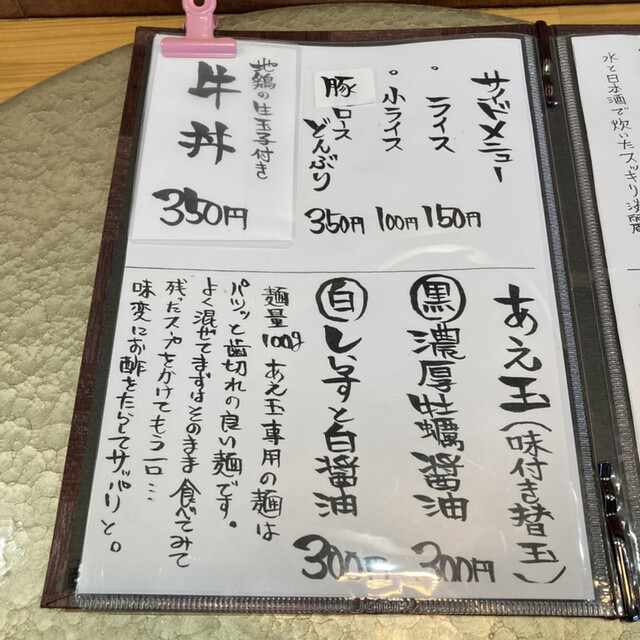 サイドメニュー
。ライス 150円
。小ライス 100円
豚ロースどんぶり 350円
地鶏の生玉子付き
牛丼
350円
あえ玉(味付き替玉)
黒 濃厚牡蠣醤油 300円
白 しらすと白醤油 300円
麺量100g あえ玉専用の麺は
パツッと歯切れの良い麺です。
よく混ぜてまずはそのまま食べてみて
残ったスープをかけてもう一口…
味変にお酢をたらしてサッパリと。
水と日本酒で炊いたスッキリ